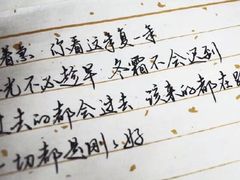 着急 你看这年复一年
光不必趁早 冬霜不会迟到
过去的都会过去 该来的都在
一切都是刚刚好